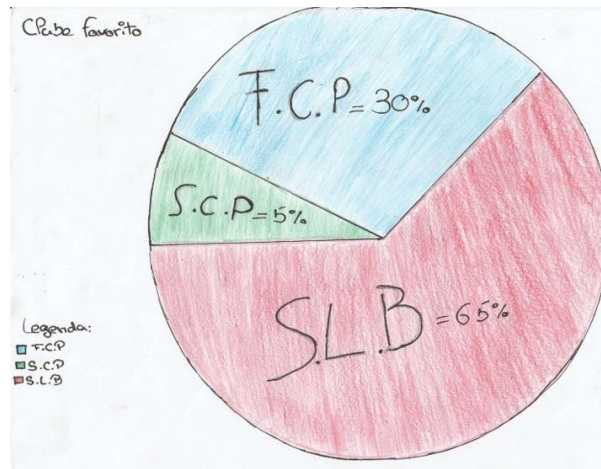 Clube favorito
F.C.P = 30%
S.C.P = 5%
S.L.B = 65%
Legenda:
F.C.P
S.C.P
S.L.B